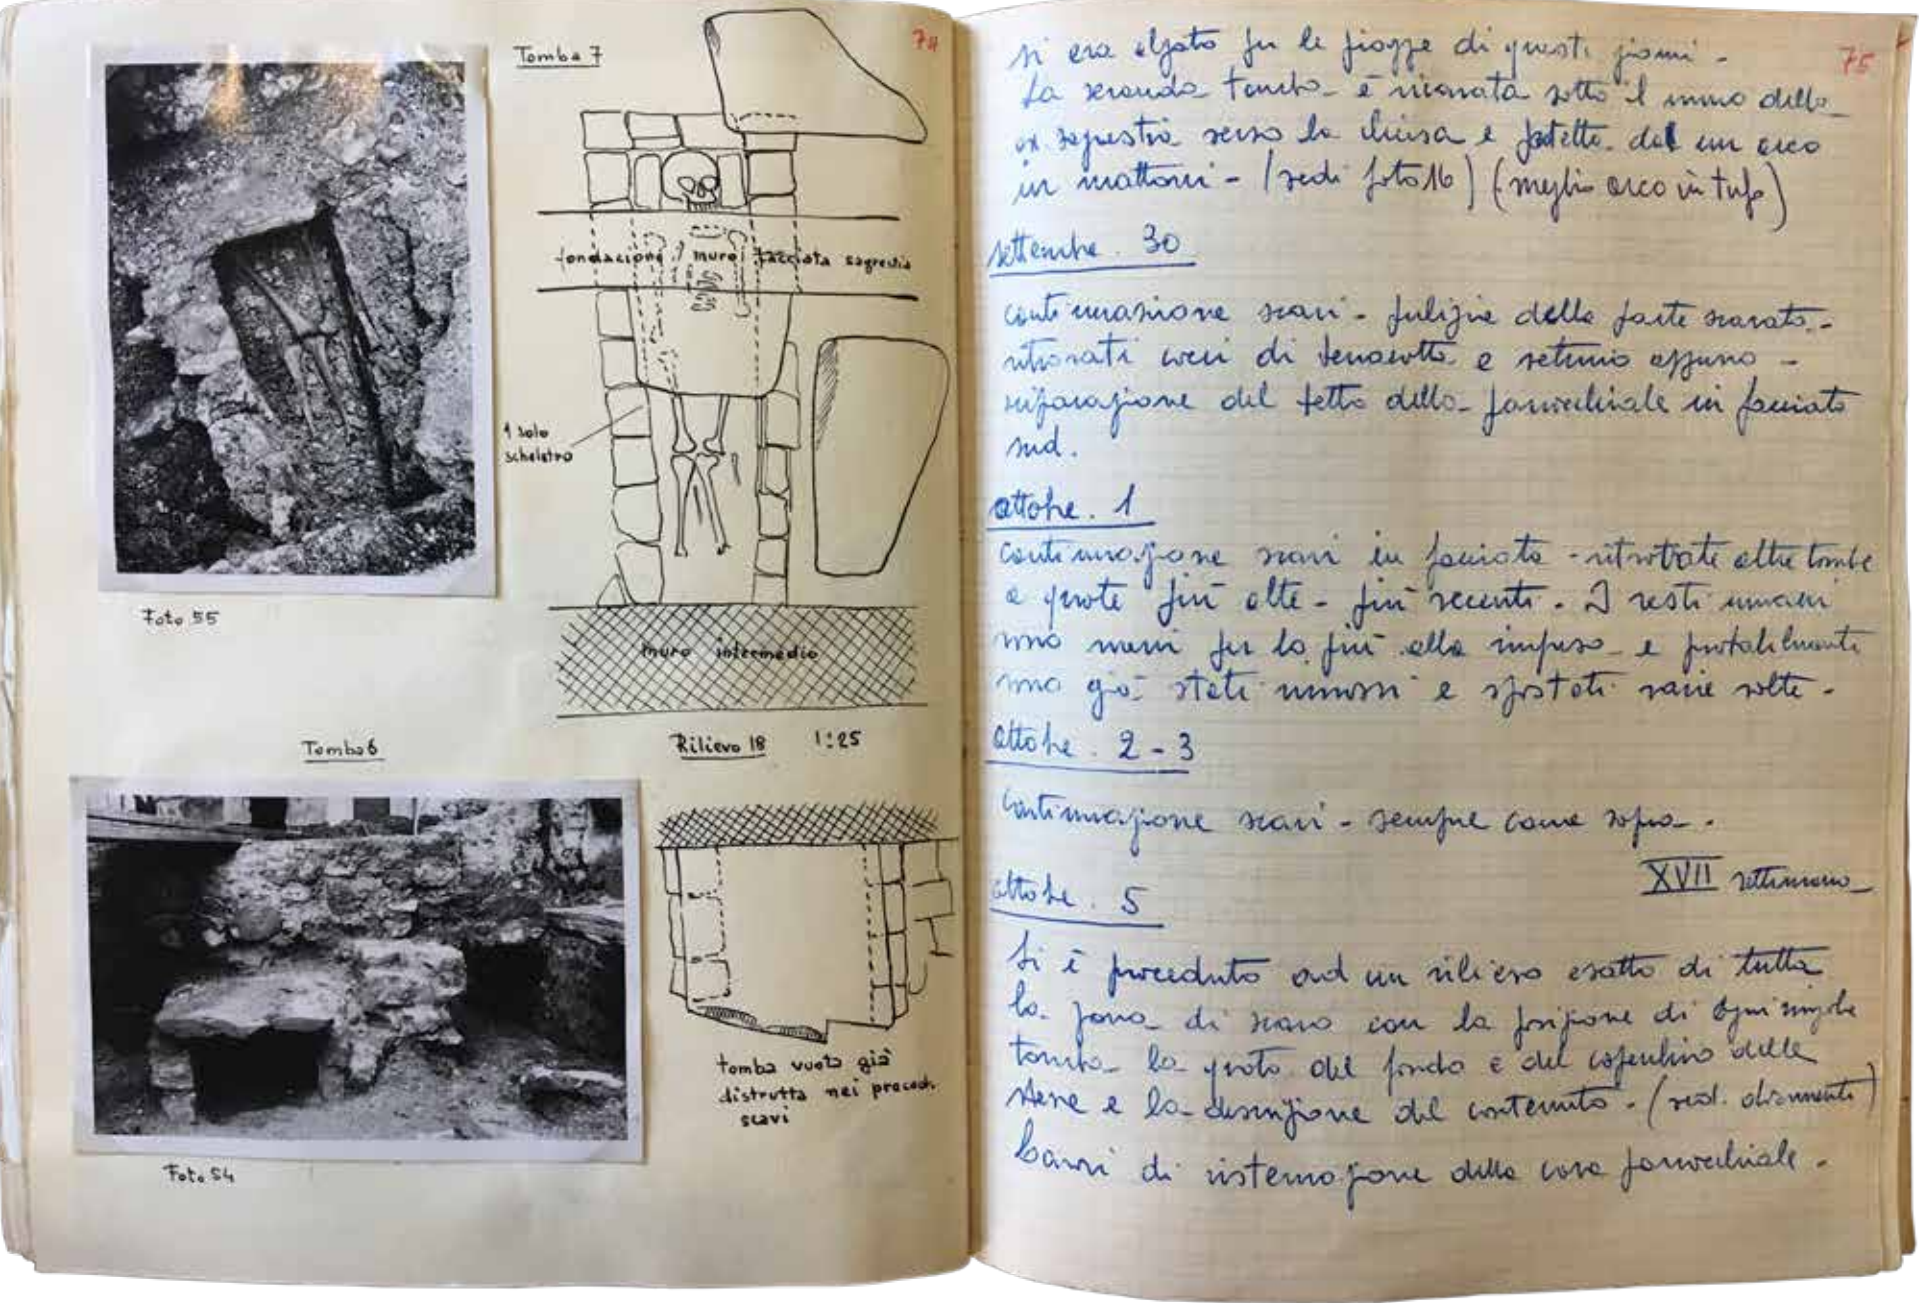 74
Tomba 7
fondazione muro facciata sagrestia
1 solo
scheletro
muro intermedio
Foto 55
Tomba 6
Rilievo 18 1:25
tomba vuota già
distrutta nei preced.
scavi
Foto 54
75
si era alzato per le piogge di questi giorni -
La seconda tomba è ricavata sotto il muro della
ex sagrestia verso la chiesa e protetta da un arco
in mattoni - (vedi foto 16) (meglio arco in tufo)
settembre. 30
continuazione scavi - pulizia della parte scavata -
ritrovati cocci di terracotta e
riparazione del tetto della parrocchiale in facciata
sud.
ottobre. 1
continuazione scavi in facciata - ritrovate altre tombe
a quote più alte - più recenti. I resti umani
sono messi per lo più alla rinfusa e probabilmente
sono già stati rimossi e spostati varie volte -
ottobre. 2-3
continuazione scavi - sempre come sopra -
XVII settimana
ottobre. 5
Si è proceduto ad un rilievo esatto di tutta
la zona di scavo con la posizione di ogni singola
tomba la quota del fondo e del coperchio delle
stesse e la descrizione del contenuto - (ved.
Lavori di sistemazione della casa parrocchiale -